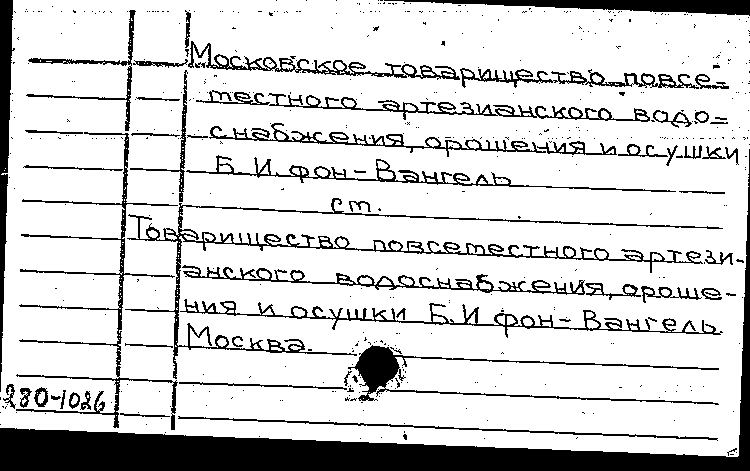 Московское товарищество повсе=
местного артезианского водо=
снабжения, орошения и осушки
Б. И. фон-Вангель
см.
Товарищество повсеместного артези-
анского водоснабжения, ороше-
ния и осушки Б. И фон-Вангель.
Москва.
280-1026